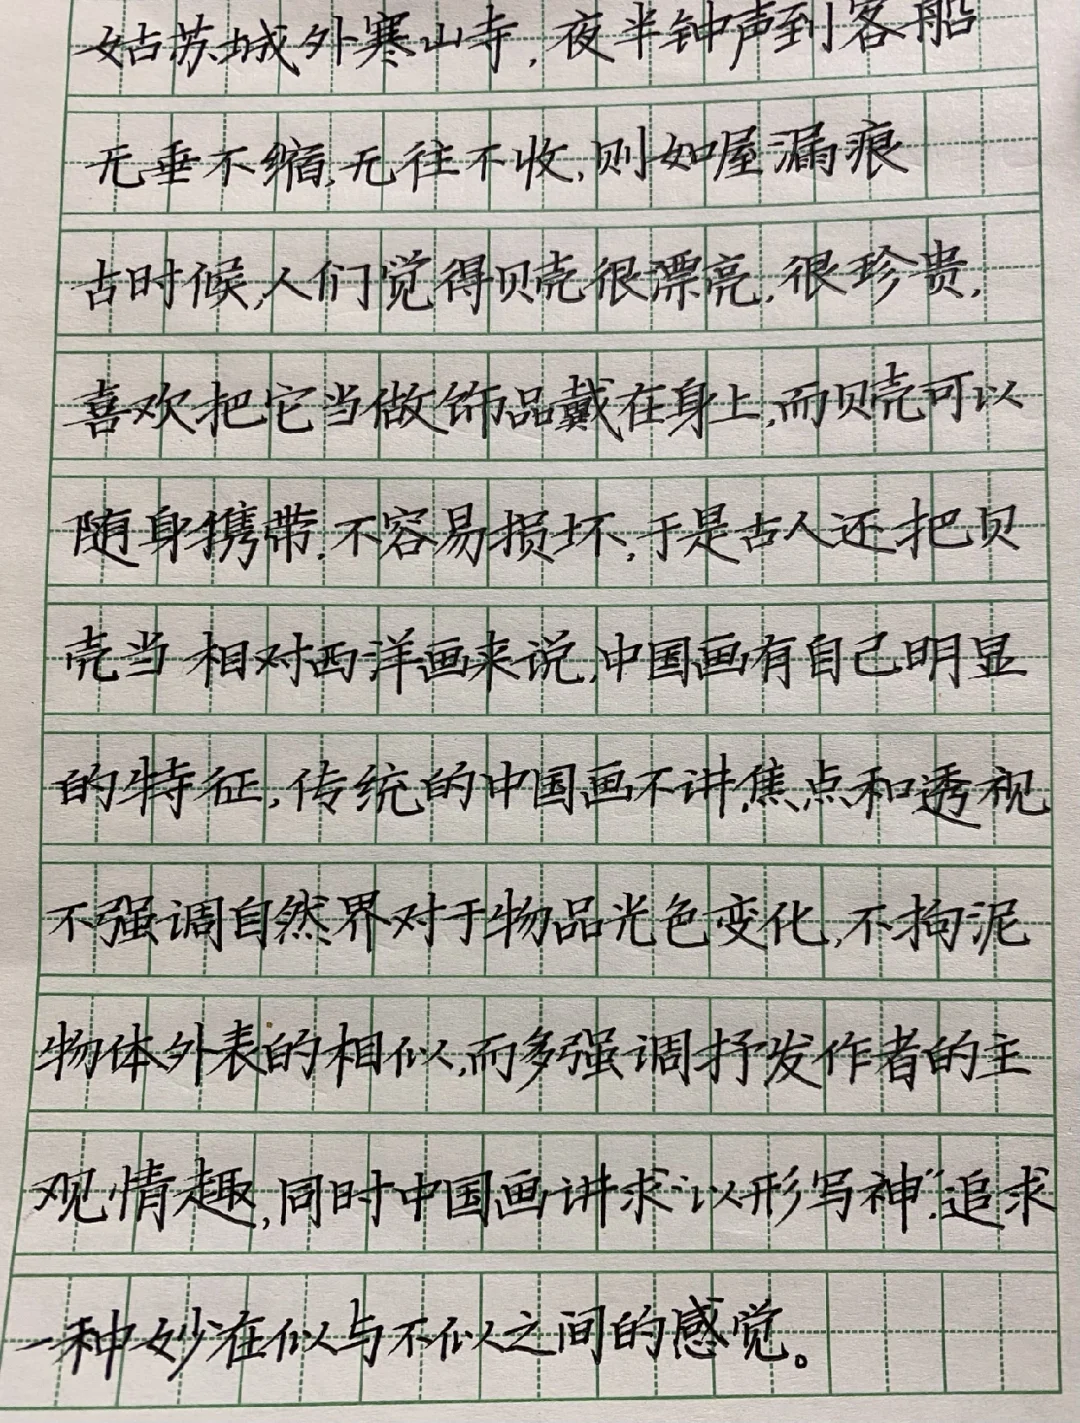 姑苏城外寒山寺,夜半钟声到客船
无垂不缩,无往不收,则如屋漏痕
古时候,人们觉得贝壳很漂亮,很珍贵,
喜欢把它当做饰品戴在身上,而贝壳可以
随身携带,不容易损坏,于是古人还把贝
壳当 相对西洋画来说,中国画有自己明显
的特征,传统的中国画不讲焦点和透视
不强调自然界对于物品光色变化,不拘泥
物体外表的相似,而多强调抒发作者的主
观情趣,同时中国画讲求“以形写神”,追求
一种妙在似与不似之间的感觉。